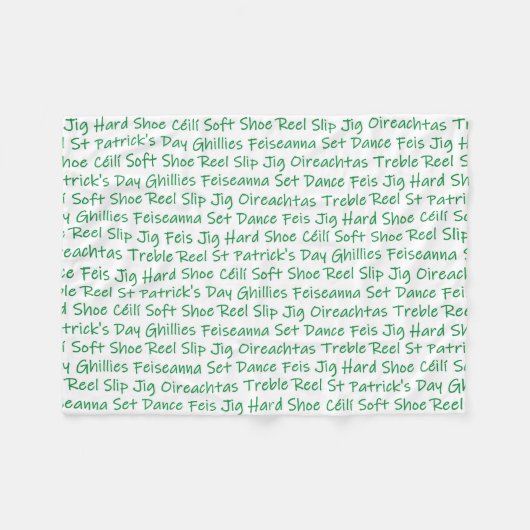 Jig Hard Shoe Céilí Soft Shoe Reel Slip Jig Oireachtas Tre
l St Patrick's Day Ghillies Feiseanna Set Dance Feis Jig H
hoe Céilí Soft Shoe Reel Slip Jig Oireachtas Treble Reel S
atrick's Day Ghillies Feiseanna Set Dance Feis Jig Hard Sh
ay Ghillies Feiseanna Set Dance Feis Jig Hard Shoe Céilí S
s Reel Slip Jig Feis Jig Hard Shoe Céilí Soft Shoe Reel Slip
eachtas Treble Reel St Patrick's Day Ghillies Feiseanna S
Dance Feis Jig Hard Shoe Céilí Soft Shoe Reel Slip Jig Oir
le Reel St Patrick's Day Ghillies Feiseanna Set Dance Fei
trick's Day Ghillies Feiseanna Set Dance Feis Jig Hard Sho
í Soft Shoe Reel Slip Jig Oireachtas Treble Reel St Patri
y Ghillies Feiseanna Set Dance Feis Jig Hard Shoe Céilí
Reel Slip Jig Oireachtas Treble Reel St Patrick's Day Gh
eiseanna Set Dance Feis Jig Hard Shoe Céilí Soft Shoe Reel